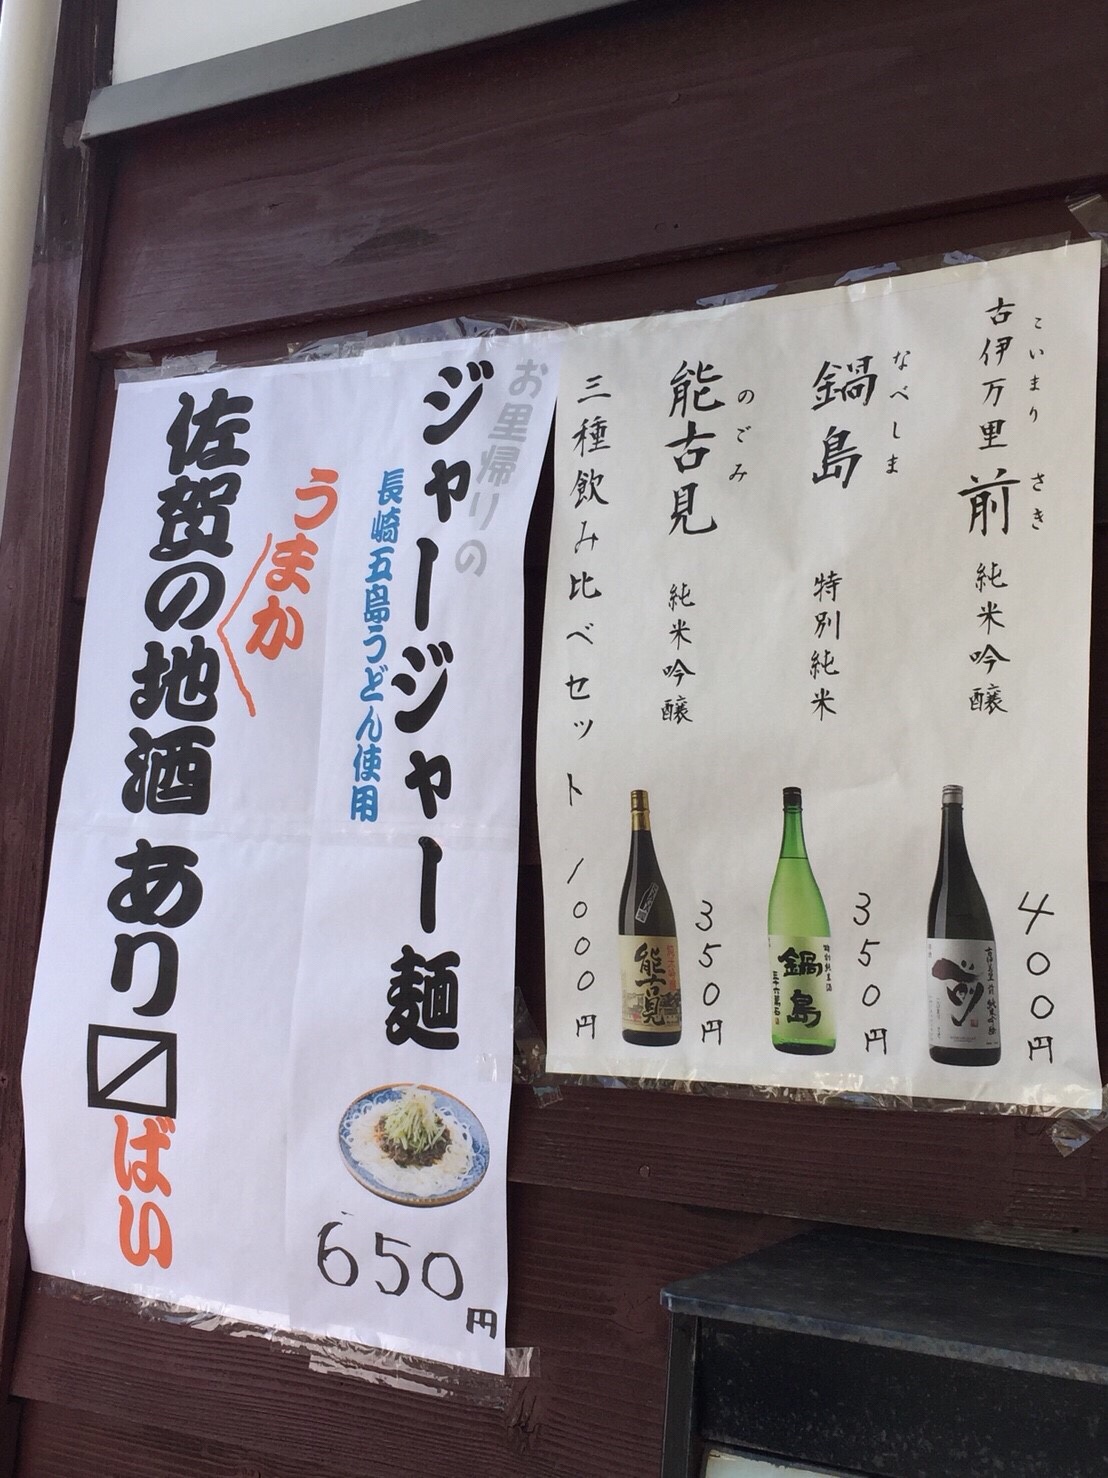 古伊万里 前 純米吟醸
こいまり さき
400円
鍋島 特別純米
なべしま
350円
能古見 純米吟醸
のごみ
350円
三種飲み比べセット 1000円
前
特別純米酒
鍋島
能古見
お里帰りの
ジャージャー麺
長崎五島うどん使用
650円
うまか
佐賀の地酒あり〼
ばい